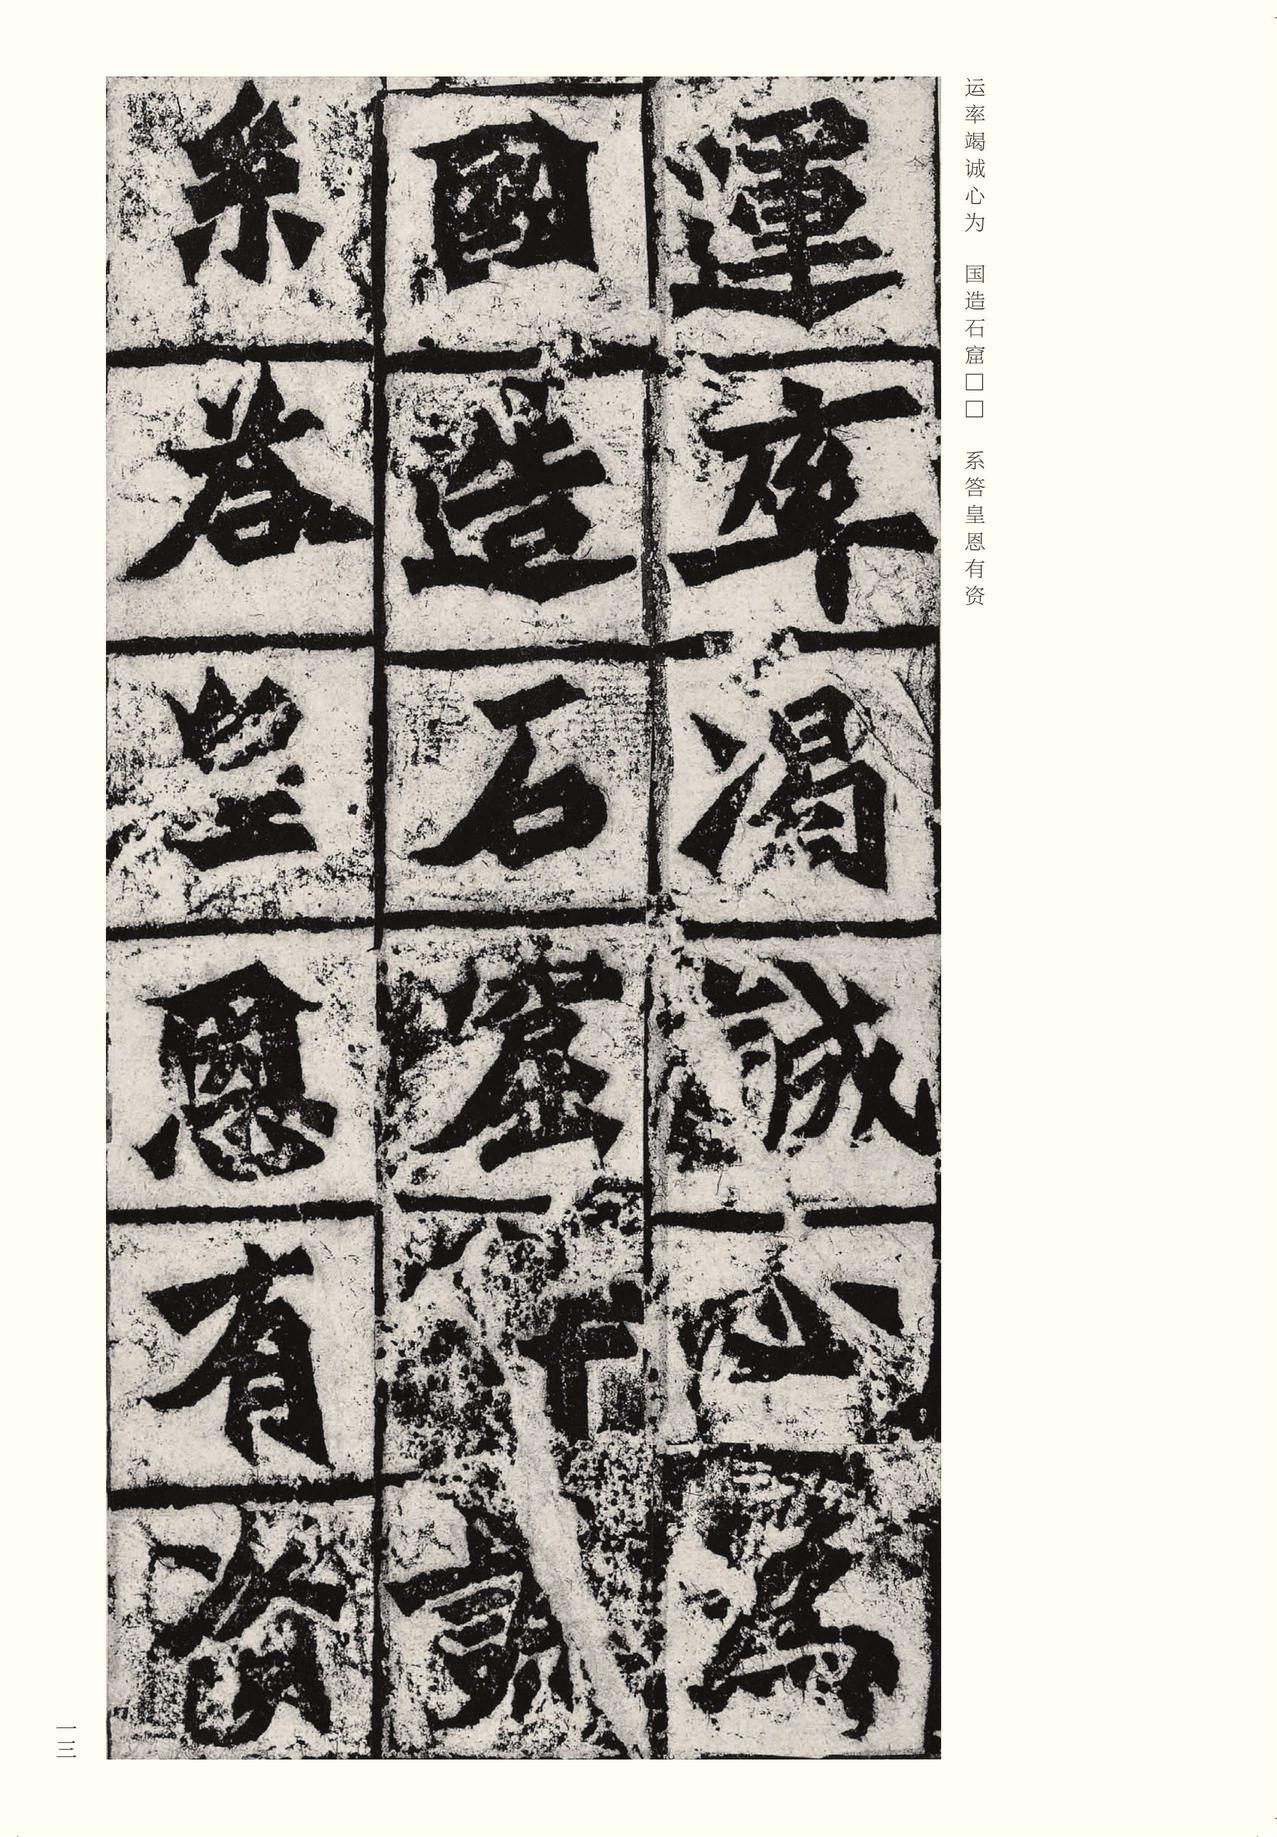 运率竭诚心为　国造石窟□□　系答皇恩有资
運率渴誠心為
國造石窟
系答皇恩有資
一三